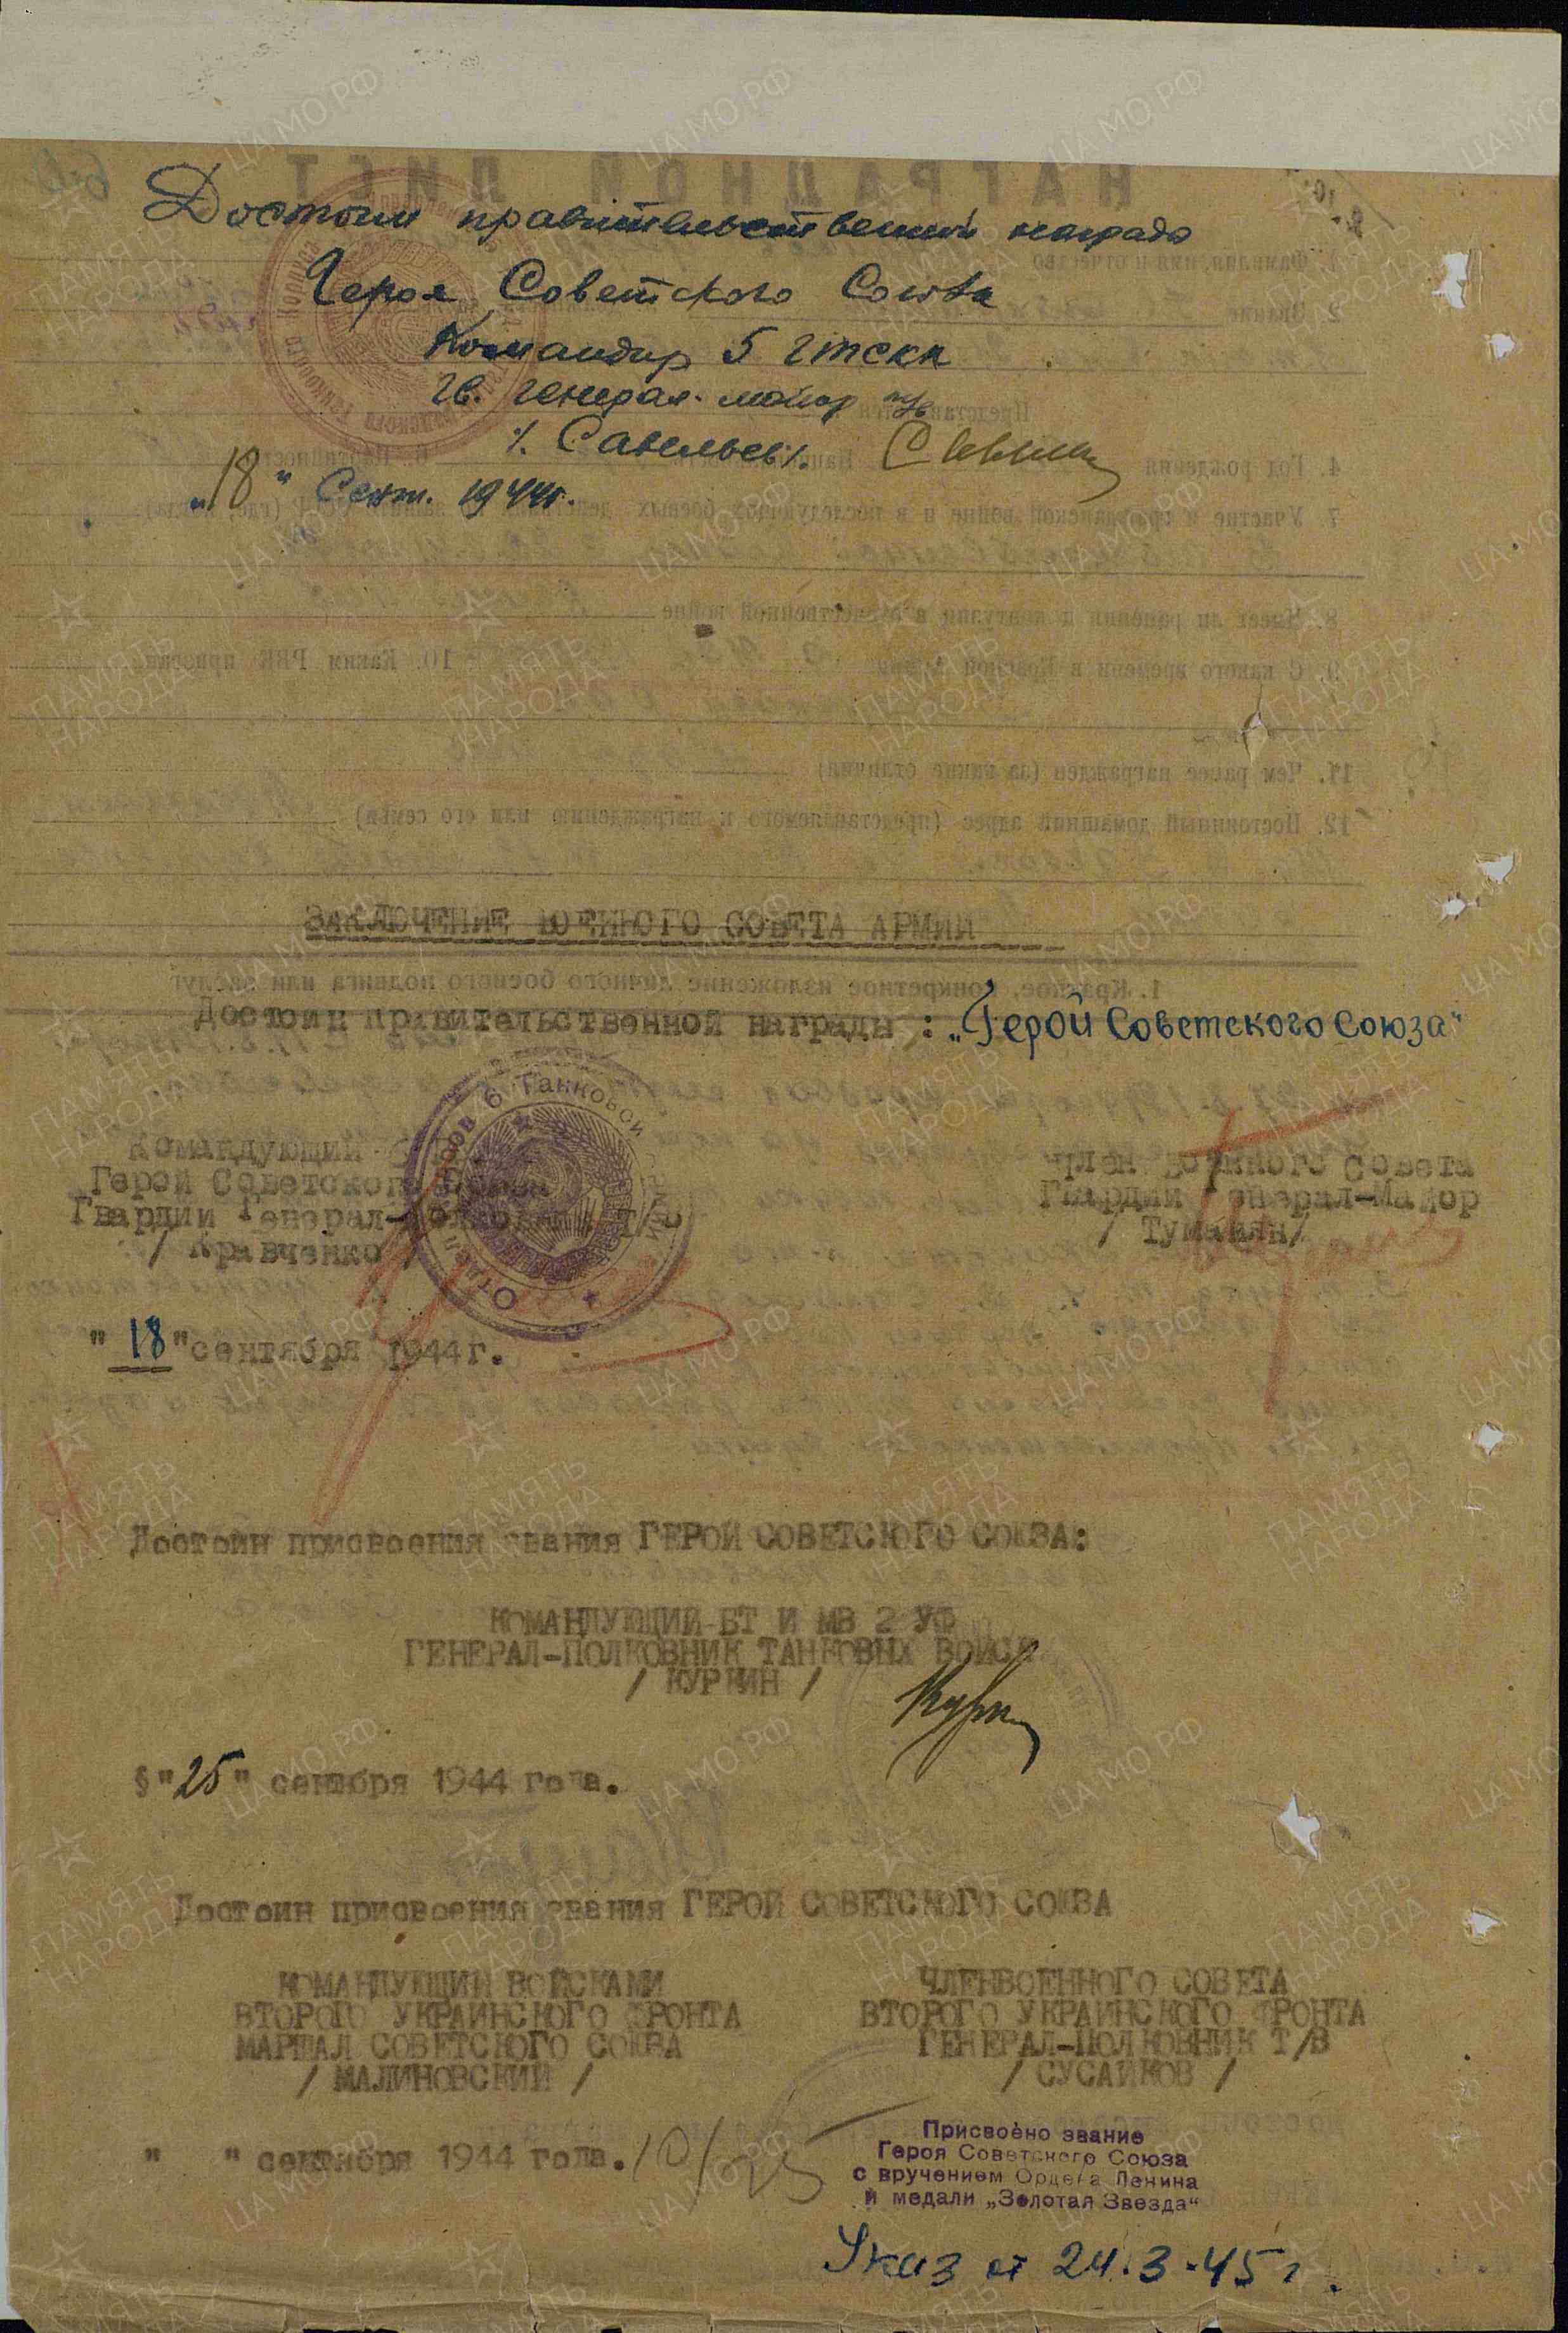 Достоин правительственной награды
Героя Советского Союза
Командир 5 гтскк
Гв. генерал-майор т/в
/. Савельев/.
"18" Сент. 1944г.
ЗАКЛЮЧЕНИЕ ВОЕННОГО СОВЕТА АРМИИ
Достоин правительственной награды : „Герой Советского Союза“
Командующий 6
Герой Советского Союза
Гвардии Генерал-Полковник т/в
/ Кравченко /
Член Военного Совета
Гвардии Генерал-Майор
/ Туманян/
"18"сентября 1944г.
Достоин присвоения звания ГЕРОЙ СОВЕТСКОГО СОЮЗА:
КОМАНДУЮЩИЙ БТ И МВ 2 УФ
ГЕНЕРАЛ-ПОЛКОВНИК ТАНКОВЫХ ВОЙСК
/ КУРКИН /
"25" сентября 1944 года.
Достоин присвоения звания ГЕРОЙ СОВЕТСКОГО СОЮЗА
КОМАНДУЮЩИЙ ВОЙСКАМИ
ВТОРОГО УКРАИНСКОГО ФРОНТА
МАРШАЛ СОВЕТСКОГО СОЮЗА
/ МАЛИНОВСКИЙ /
ЧЛЕН ВОЕННОГО СОВЕТА
ВТОРОГО УКРАИНСКОГО ФРОНТА
ГЕНЕРАЛ-ПОЛКОВНИК Т/В
/ СУСАЙКОВ /
" " сентября 1944 года.
Присвоено звание
Героя Советского Союза
с вручением Ордена Ленина
и медали „Золотая Звезда“
Указ от 24.3.45 г.